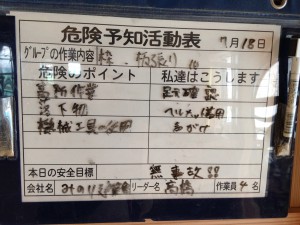 危険予知活動表
7月18日
グループの作業内容
危険のポイント 私達はこうします
高所作業 足元確認
落下物 ヘルメット着用
機械工具の使用 声がけ
本日の安全目標 無事故
会社名 リーダー名 高橋 作業員 4名